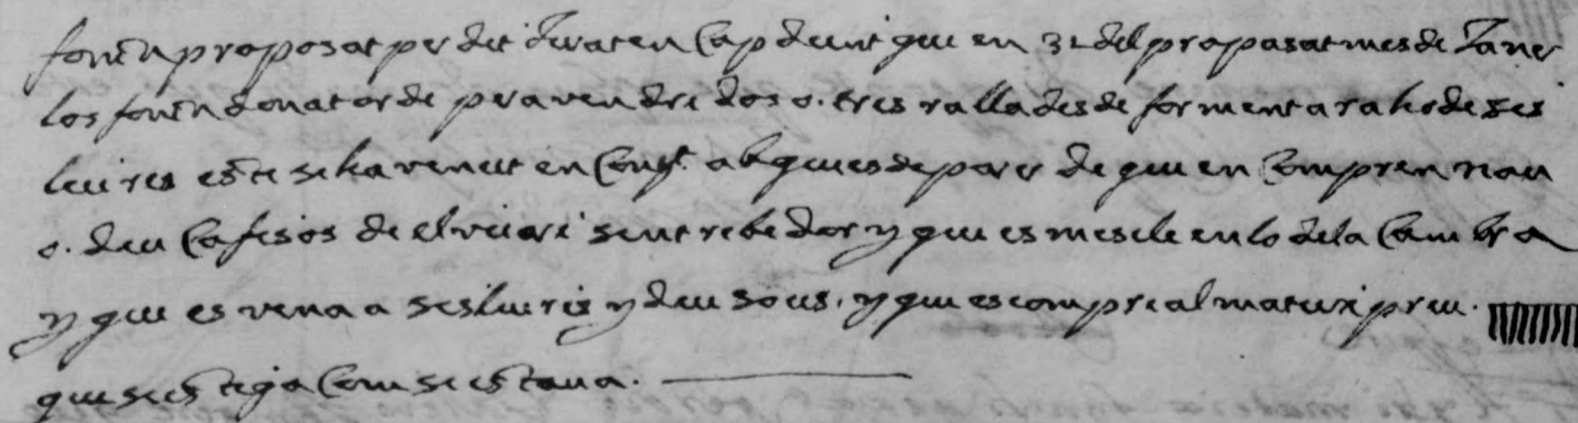 fonch proposat per dit Jurat en Cap dient que en 31 del propasat mes de Janer
los fonch donat orde pera vendre dos o. tres rallades de forment a raho de ses
lliures este se ha venut en Const. ab que es de parer de que en Compren nou
o. deu Cafisos de el vicari sent rebedor y que es mescle en lo de la Cambra
y que es vena a ses liures y deu sous. y que es compre al mateix preu.
que se estiga Com se estava.